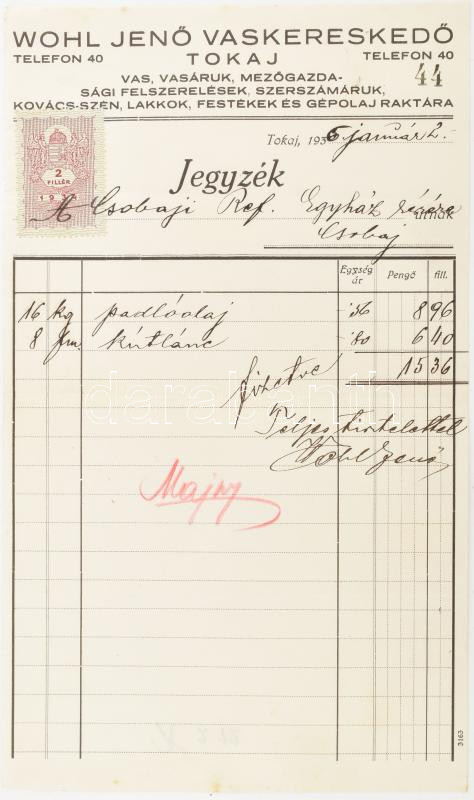 WOHL JENŐ VASKERESKEDŐ
TELEFON 40 TOKAJ TELEFON 40
44
VAS, VASÁRUK, MEZŐGAZDA-
SÁGI FELSZERELÉSEK, SZERSZÁMÁRUK,
KOVÁCS-SZÉN, LAKKOK, FESTÉKEK ÉS GÉPOLAJ RAKTÁRA
2
FILLÉR
Tokaj, 1936 január 2.
Jegyzék
A Csobaji Ref. Egyház részére úrnak
Csobaj
Egység ár Pengő fill.
16 kg padlóolaj -'56 8 96
8 fm. kútlánc -'80 6 40
15 36
fizetve
Teljes tisztelettel
Wohl Jenő
darabanth
3163